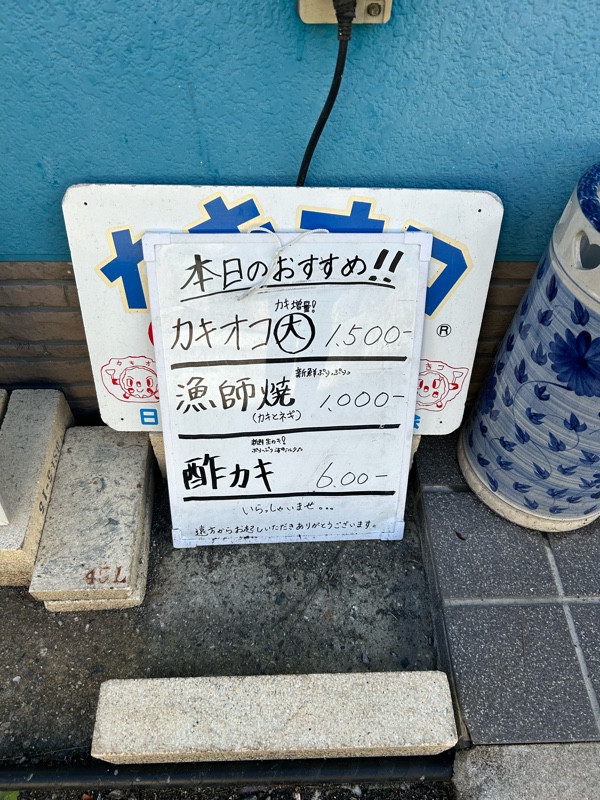 カキオコ
®
カキオコ
キコ
日
本日のおすすめ!!
カキ増量!
カキオコ 大 1,500-
新鮮ぷりっぷり。
漁師焼 1,000-
(カキとネギ)
酢カキ 6.00-
いらっしゃいませ。。。
遠方からお越しいただきありがとうございます。
45L